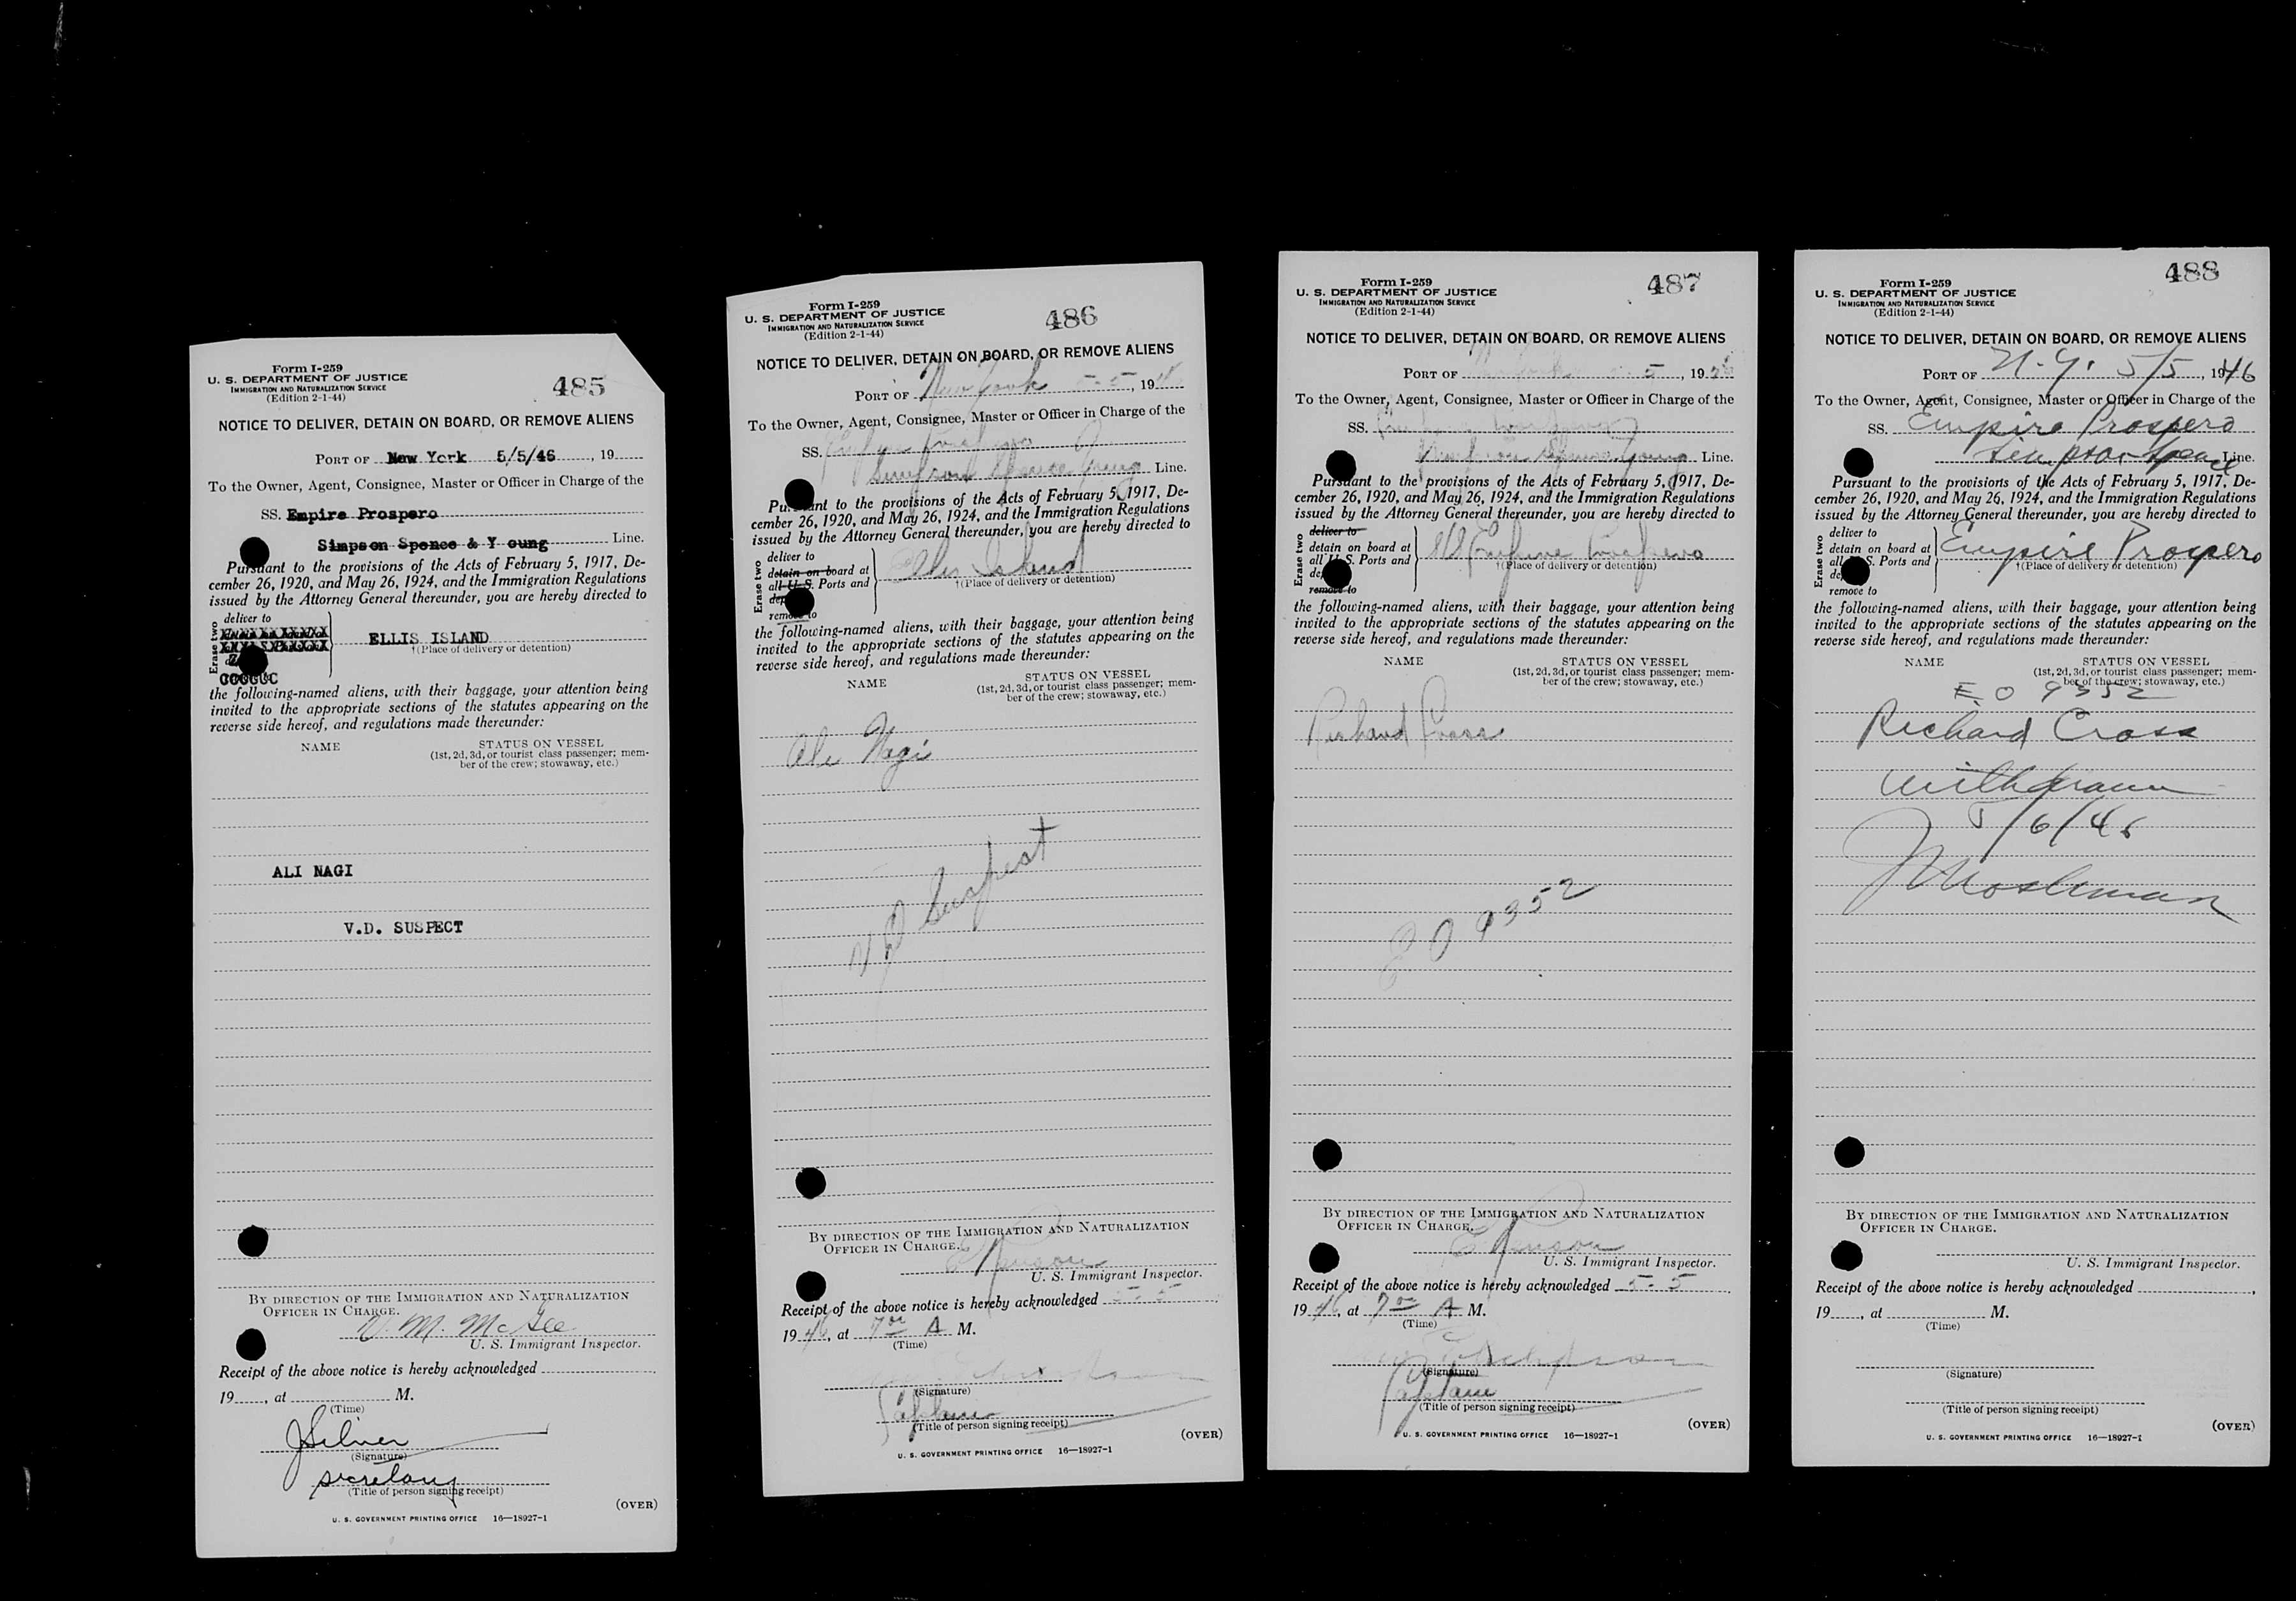 Form I-259
U. S. DEPARTMENT OF JUSTICE
IMMIGRATION AND NATURALIZATION SERVICE
(Edition 2-1-44)
485
NOTICE TO DELIVER, DETAIN ON BOARD, OR REMOVE ALIENS
PORT OF New York 5/5/46, 19
To the Owner, Agent, Consignee, Master or Officer in Charge of the
SS. Empire Prospero
Simpson Spence & Y oung Line.
Pursuant to the provisions of the Acts of February 5, 1917, De-
cember 26, 1920, and May 26, 1924, and the Immigration Regulations
issued by the Attorney General thereunder, you are hereby directed to
Erase two
deliver to
ELLIS ISLAND
†(Place of delivery or detention)
the following-named aliens, with their baggage, your attention being
invited to the appropriate sections of the statutes appearing on the
reverse side hereof, and regulations made thereunder:
NAME STATUS ON VESSEL
(1st, 2d, 3d, or tourist class passenger; mem-
ber of the crew; stowaway, etc.)
ALI NAGI
V.D. SUSPECT
BY DIRECTION OF THE IMMIGRATION AND NATURALIZATION
OFFICER IN CHARGE.
V. M. McGee
U. S. Immigrant Inspector.
Receipt of the above notice is hereby acknowledged
19, at M.
(Time)
J Silver
(Signature)
secretary
(Title of person signing receipt)
(OVER)
U. S. GOVERNMENT PRINTING OFFICE 16—18927-1
Form I-259
U. S. DEPARTMENT OF JUSTICE
IMMIGRATION AND NATURALIZATION SERVICE
(Edition 2-1-44)
486
NOTICE TO DELIVER, DETAIN ON BOARD, OR REMOVE ALIENS
PORT OF New York 5-5, 194
To the Owner, Agent, Consignee, Master or Officer in Charge of the
SS.
Spence Young Line.
Pursuant to the provisions of the Acts of February 5, 1917, De-
cember 26, 1920, and May 26, 1924, and the Immigration Regulations
issued by the Attorney General thereunder, you are hereby directed to
Erase two
deliver to
detain on board at
all U. S. Ports and
remove to
Ellis Island
†(Place of delivery or detention)
the following-named aliens, with their baggage, your attention being
invited to the appropriate sections of the statutes appearing on the
reverse side hereof, and regulations made thereunder:
NAME STATUS ON VESSEL
(1st, 2d, 3d, or tourist class passenger; mem-
ber of the crew; stowaway, etc.)
Ali Nagi
V D Suspect
BY DIRECTION OF THE IMMIGRATION AND NATURALIZATION
OFFICER IN CHARGE.
U. S. Immigrant Inspector.
Receipt of the above notice is hereby acknowledged 5-5,
1946, at 7 00 A M.
(Time)
(Signature)
Captain
(Title of person signing receipt)
(OVER)
U. S. GOVERNMENT PRINTING OFFICE 16—18927-1
Form I-259
U. S. DEPARTMENT OF JUSTICE
IMMIGRATION AND NATURALIZATION SERVICE
(Edition 2-1-44)
487
NOTICE TO DELIVER, DETAIN ON BOARD, OR REMOVE ALIENS
PORT OF New York 5-5, 1946
To the Owner, Agent, Consignee, Master or Officer in Charge of the
SS.
Spence Young Line.
Pursuant to the provisions of the Acts of February 5, 1917, De-
cember 26, 1920, and May 26, 1924, and the Immigration Regulations
issued by the Attorney General thereunder, you are hereby directed to
Erase two
deliver to
detain on board at
all U. S. Ports and
remove to
SS Empire Prospero
†(Place of delivery or detention)
the following-named aliens, with their baggage, your attention being
invited to the appropriate sections of the statutes appearing on the
reverse side hereof, and regulations made thereunder:
NAME STATUS ON VESSEL
(1st, 2d, 3d, or tourist class passenger; mem-
ber of the crew; stowaway, etc.)
Richard Cross
E O 9352
BY DIRECTION OF THE IMMIGRATION AND NATURALIZATION
OFFICER IN CHARGE.
U. S. Immigrant Inspector.
Receipt of the above notice is hereby acknowledged 5-5,
1946, at 7 00 A M.
(Time)
(Signature)
Captain
(Title of person signing receipt)
(OVER)
U. S. GOVERNMENT PRINTING OFFICE 16—18927-1
Form I-259
U. S. DEPARTMENT OF JUSTICE
IMMIGRATION AND NATURALIZATION SERVICE
(Edition 2-1-44)
488
NOTICE TO DELIVER, DETAIN ON BOARD, OR REMOVE ALIENS
PORT OF N.Y. 5/5, 1946
To the Owner, Agent, Consignee, Master or Officer in Charge of the
SS. Empire Prospero
Simpson Spence Line.
Pursuant to the provisions of the Acts of February 5, 1917, De-
cember 26, 1920, and May 26, 1924, and the Immigration Regulations
issued by the Attorney General thereunder, you are hereby directed to
Erase two
deliver to
detain on board at
all U. S. Ports and
remove to
Empire Prospero
†(Place of delivery or detention)
the following-named aliens, with their baggage, your attention being
invited to the appropriate sections of the statutes appearing on the
reverse side hereof, and regulations made thereunder:
NAME STATUS ON VESSEL
(1st, 2d, 3d, or tourist class passenger; mem-
ber of the crew; stowaway, etc.)
E O 9352
Richard Cross
withdrawn
5/6/46
BY DIRECTION OF THE IMMIGRATION AND NATURALIZATION
OFFICER IN CHARGE.
U. S. Immigrant Inspector.
Receipt of the above notice is hereby acknowledged,
19, at M.
(Time)
(Signature)
(Title of person signing receipt)
(OVER)
U. S. GOVERNMENT PRINTING OFFICE 16—18927-1